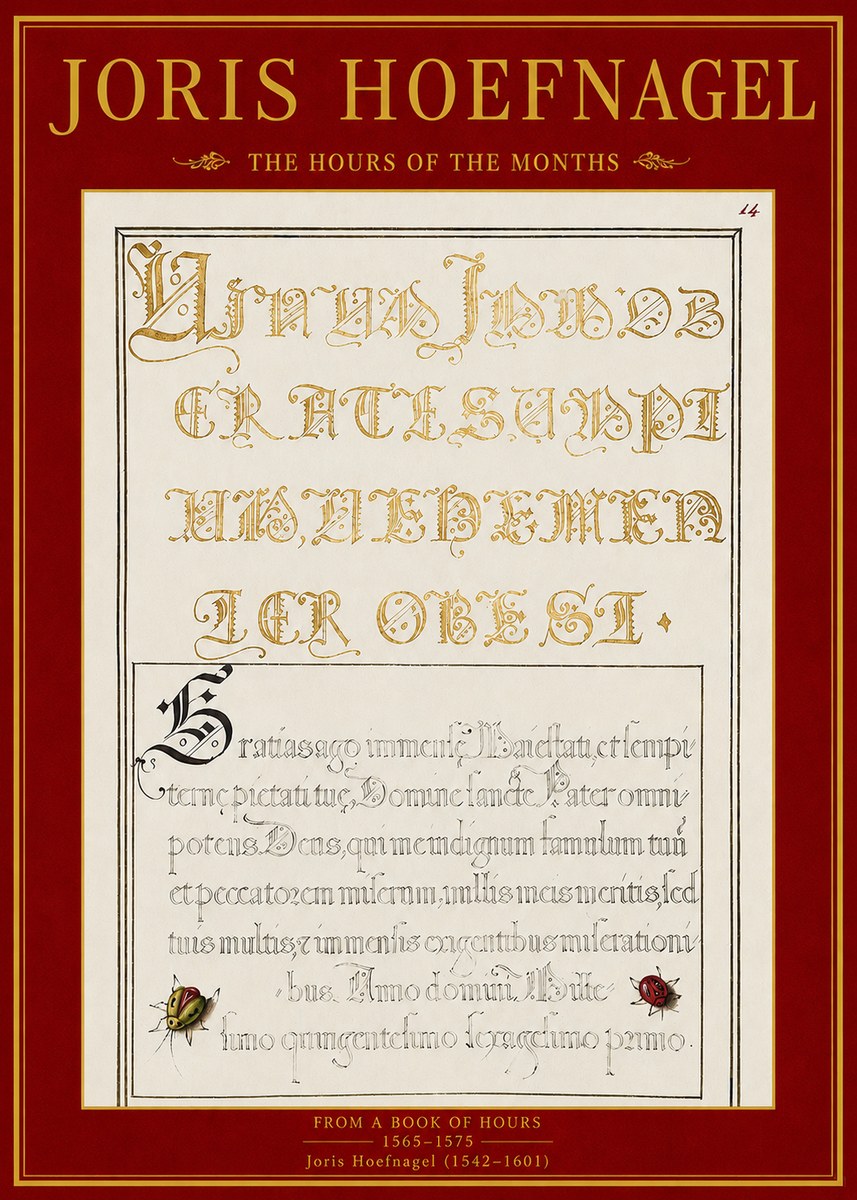 JORIS HOEFNAGEL
THE HOURS OF THE MONTHS
14
VINUM IMMOD
ERATE SUMPT
UM, VEHEMEN
TER OBEST.
Gratias ago immensę Maiestati, et sempi-
ternę pietati tuę, Domine sancte Pater omni-
potens Deus, qui me indignum famulum tuũ
et peccatorem miserum, nullis meis meritis, sed
tuis multis, & immensis exigentibus miserationi-
bus. Anno dominĩ Mille-
simo quingentesimo sexagesimo primo.
FROM A BOOK OF HOURS
1565–1575
Joris Hoefnagel (1542–1601)